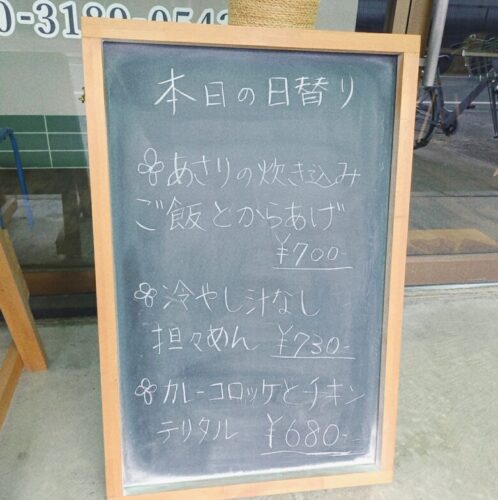 0-3189-054
本日の日替り
あさりの炊き込み
ご飯とからあげ
¥700-
冷やし汁なし
担々めん ¥730-
カレーコロッケとチキン
テリタル ¥680-